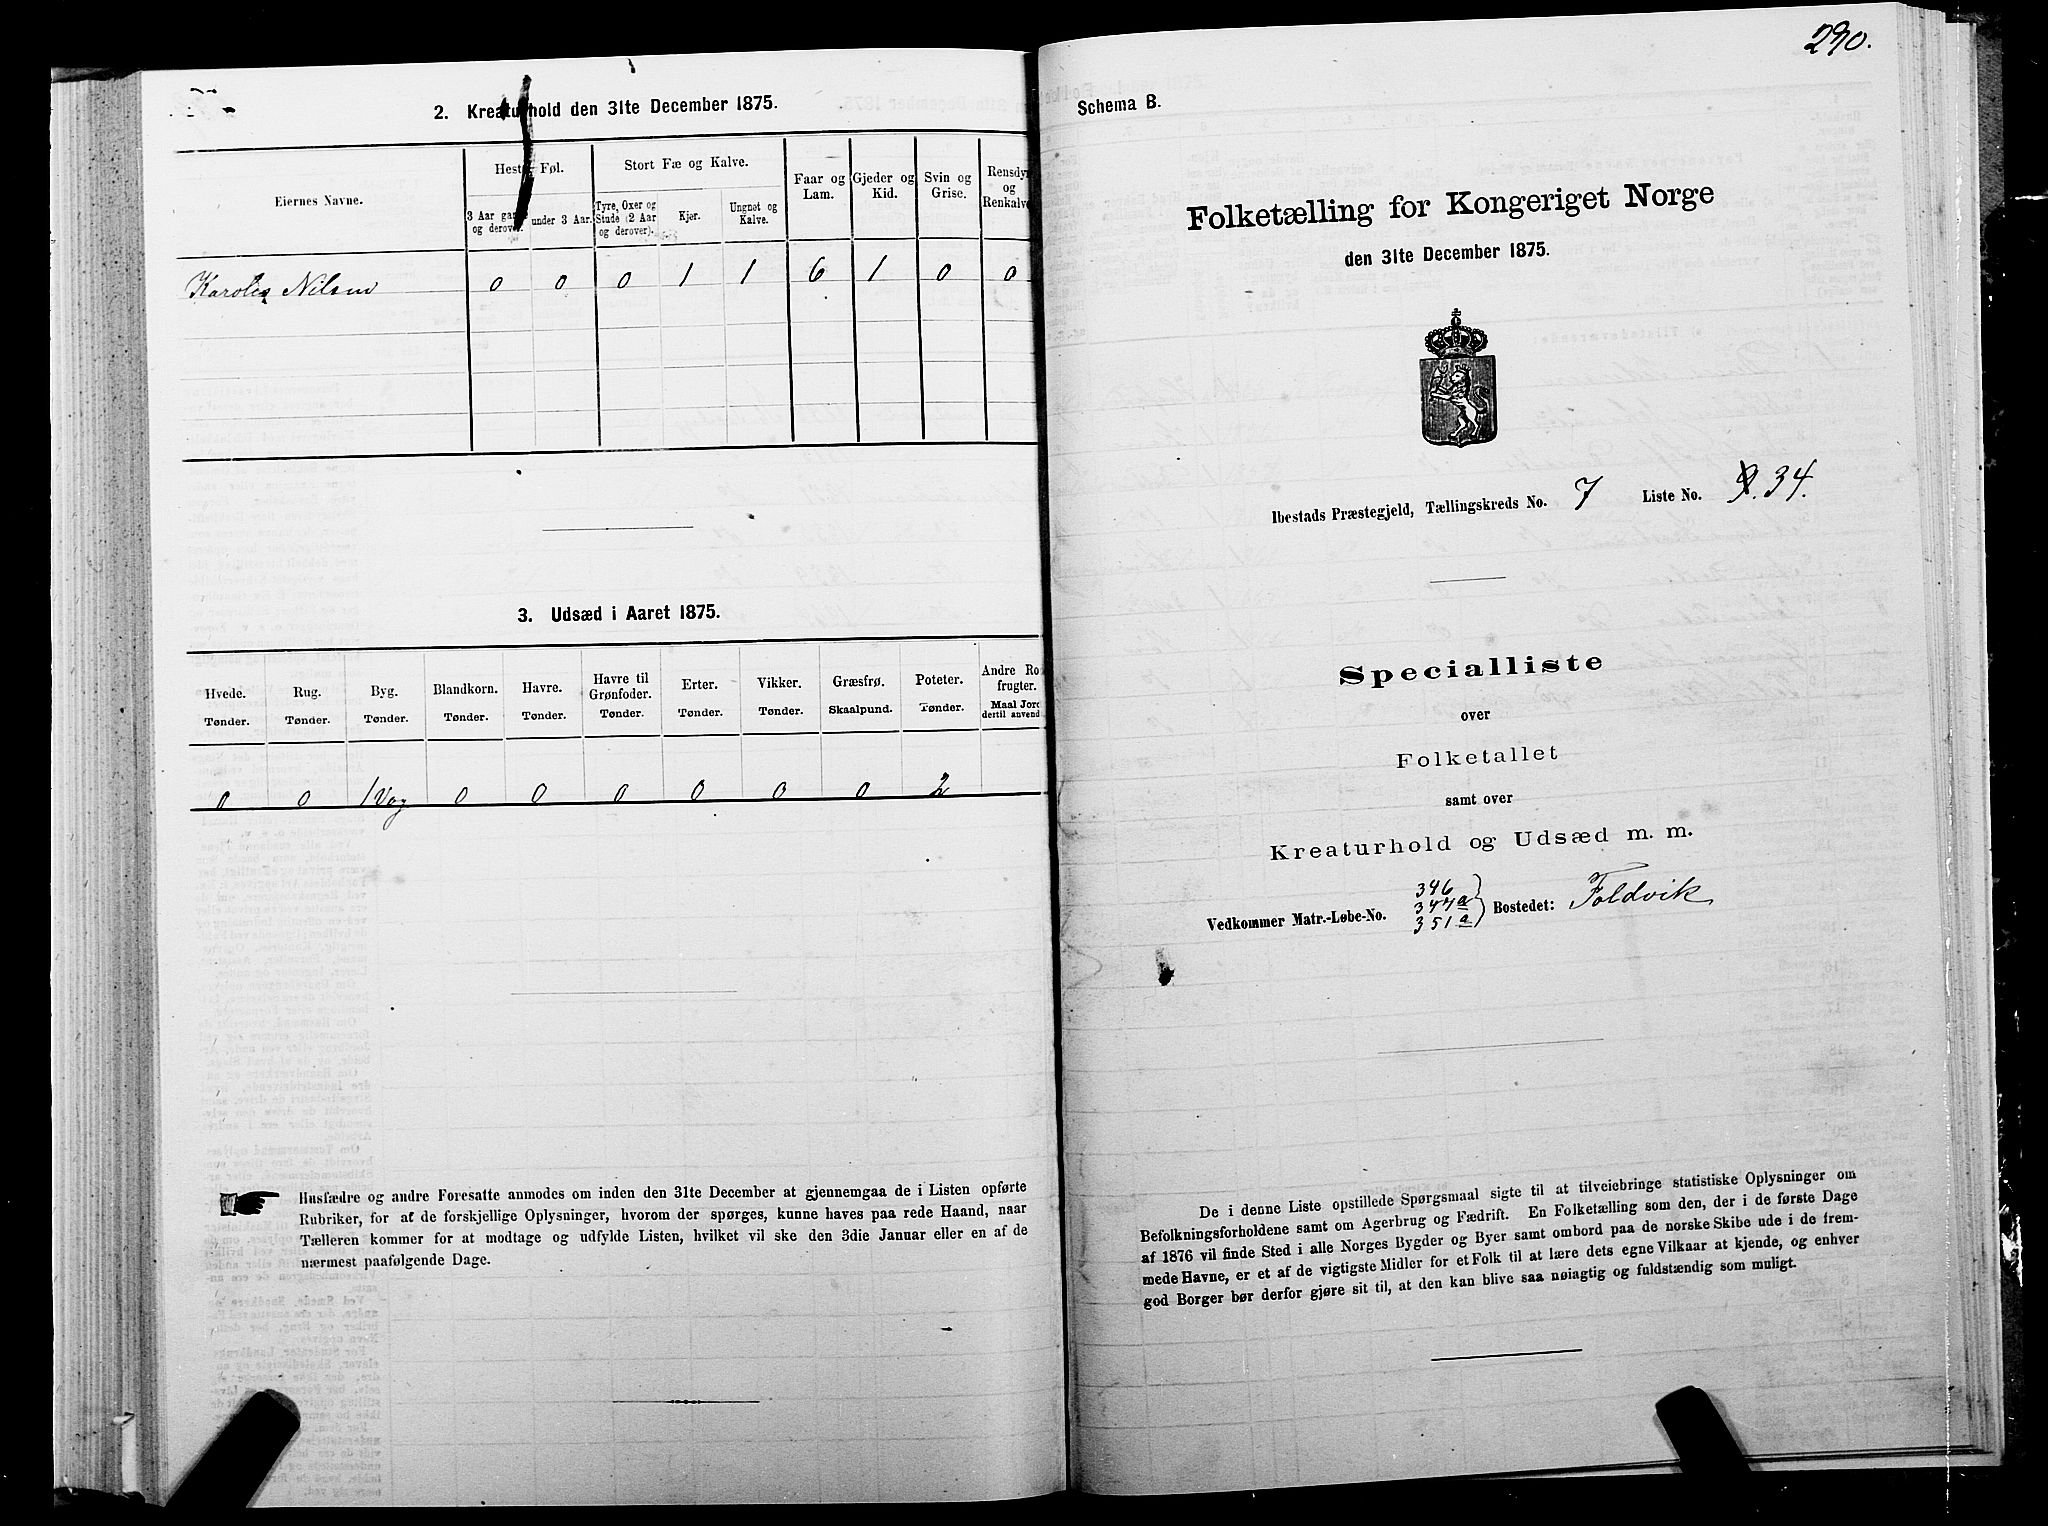 2. Kreaturhold den 31te December 1875.
Eiernes Navne.
Heste Føl.
Stort Fæ og Kalve.
Faar og Lam.
Gjeder og Kid.
Svin og Grise.
Rensdyr og Renkalve
3 Aar gamle og derover.
under 3 Aar.
Tyre, Oxer og Stude (2 Aar og derover).
Kjer.
Ungnøt og Kalve.
Nilsen 0 0 0 1 1 6 1 0 0
3. Udsæd i Aaret 1875.
Hvede. Rug. Byg. Blandkorn. Havre. Havre til Grønfoder. Erter. Vikker. Græsfrø. Poteter. Andre Ro frugter.
Tønder. Tønder. Tønder. Tønder. Tønder. Tønder. Tønder. Tønder. Skaalpund. Tønder. Maal Jord dertil anvend
0 0 1 Vog 0 0 0 0 0 0 2
Husfædre og andre Foresatte anmodes om inden den 31te December at gjennemgaa de i Listen opførte
Rubriker, for at de forskjellige Oplysninger, hvorom der spørges, kunne haves paa rede Haand, naar
Tælleren kommer for at modtage og udfylde Listen, hvilket vil ske den 3die Januar eller en af de
nærmest paafølgende Dage.
290.
Schema B.
Folketælling for Kongeriget Norge
den 31te December 1875.
Ibestads Præstegjeld, Tællingskreds No. 7 Liste No. 34.
Specialliste
over
Folketallet
samt over
Kreaturhold og Udsæd m. m.
346
344a
351a
Vedkommer Matr.-Løbe-No. Bostedet: Foldvik
De i denne Liste opstillede Spørgsmaal sigte til at tilveiebringe statistiske Oplysninger om
Befolkningsforholdene samt om Agerbrug og Fædrift. En Folketælling som den, der i de første Dage
af 1876 vil finde Sted i alle Norges Bygder og Byer samt ombord paa de norske Skibe ude i de frem-
mede Havne, er et af de vigtigste Midler for et Folk til at lære dets egne Vilkaar at kjende, og enhver
god Borger bør derfor gjøre sit til, at den kan blive saa nøiagtig og fuldstændig som muligt.